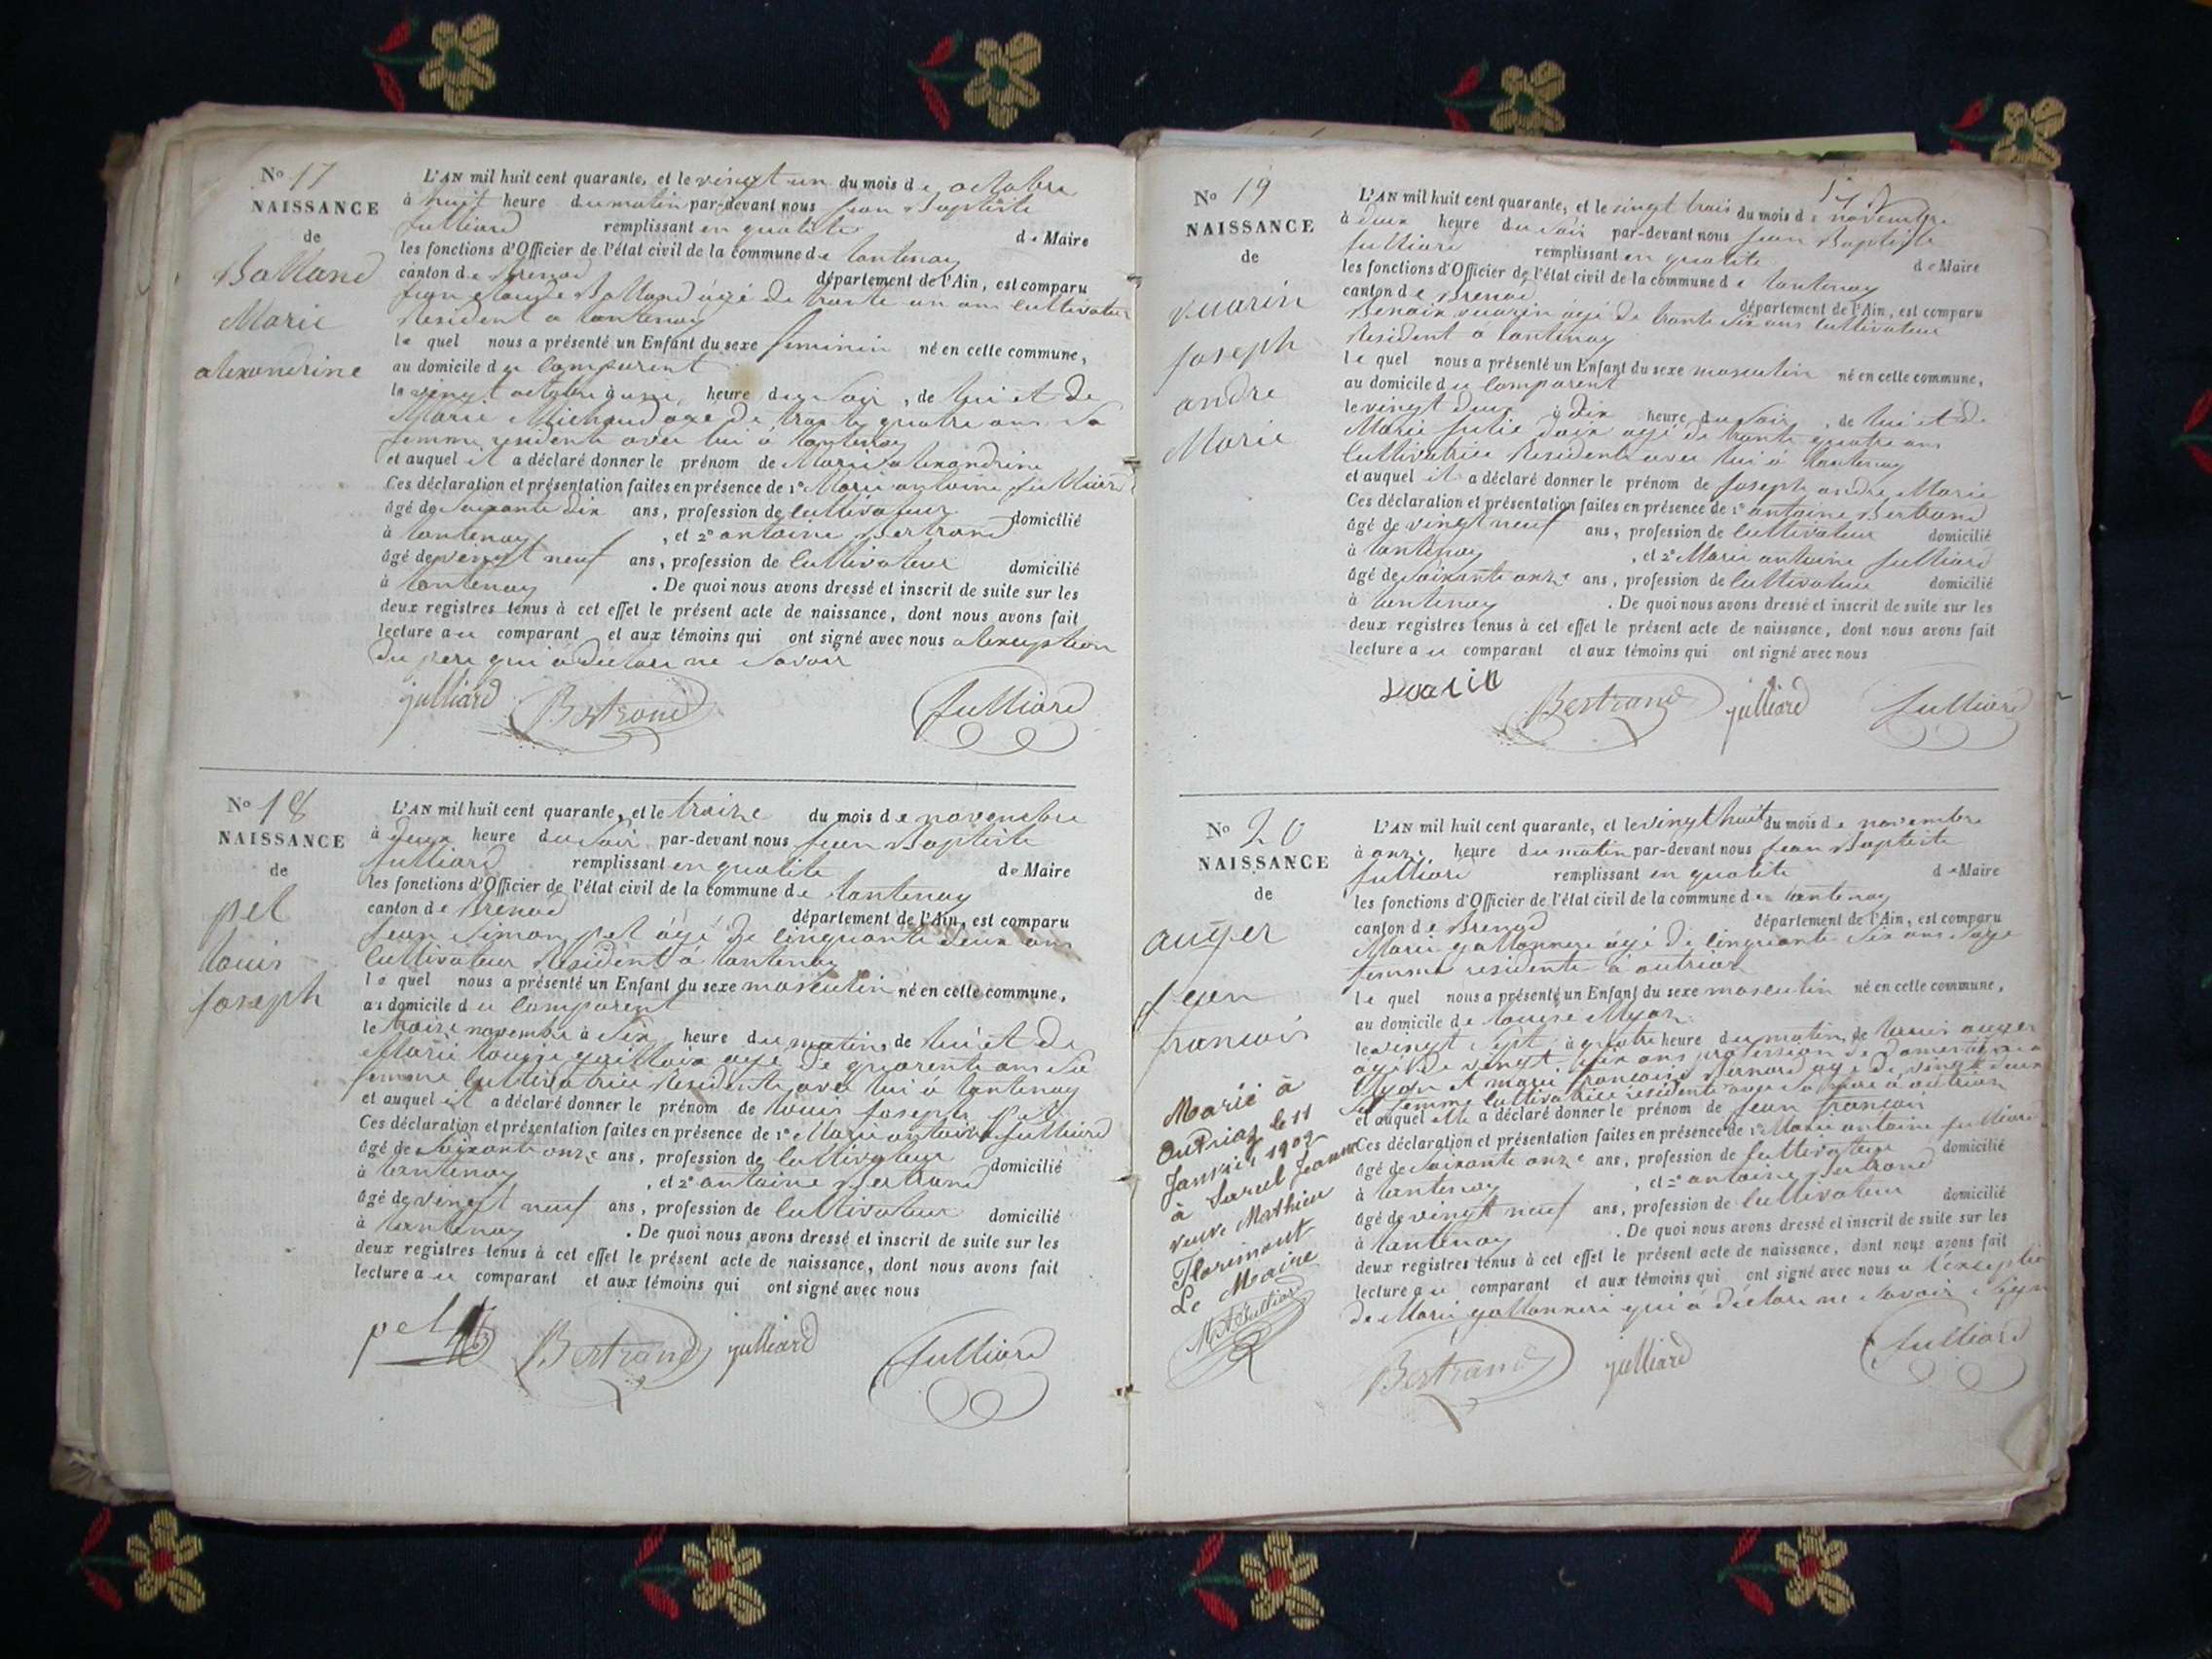 N° 17
NAISSANCE
de
Balland
Marie
alexandrine
L'AN mil huit cent quarante, et le vingt un du mois de octobre
à huit heure du matin par-devant nous jean Baptiste
julliard remplissant en qualité de Maire
les fonctions d'Officier de l'état civil de la commune de lantenay
canton de Brenod département de l'Ain, est comparu
jean claude Balland âgé de trante un ans cultivateur
Résident a lantenay
le quel nous a présenté un Enfant du sexe feminin né en cette commune,
au domicile du comparent
le vingt octobre à heure du soir, de lui et de
Marie Michaud age de trante quatre ans sa
femme residente avec lui à lantenay
et auquel il a déclaré donner le prénom de Marie alexandrine
Ces déclaration et présentation faites en présence de 1° Marie antoine julliard
âgé de soixante dix ans, profession de cultivateur domicilié
à lantenay, et 2° antoine Bertrand
âgé de vingt neuf ans, profession de cultivateur domicilié
à lantenay. De quoi nous avons dressé et inscrit de suite sur les
deux registres tenus à cet effet le présent acte de naissance, dont nous avons fait
lecture au comparant et aux témoins qui ont signé avec nous alexception
du pere qui à déclare ne savoir
julliard Bertrand julliard
N° 18
NAISSANCE
de
pet
louis
joseph
L'AN mil huit cent quarante, et le traize du mois de novembre
à deux heure du soir par-devant nous jean Baptiste
julliard remplissant en qualité de Maire
les fonctions d'Officier de l'état civil de la commune de lantenay
canton de Brenod département de l'Ain, est comparu
jean simon pet âgé de cinquante deux ans
cultivateur Résident à lantenay
le quel nous a présenté un Enfant du sexe masculin né en cette commune,
au domicile du comparent
le traize novembre à six heure du matin, de lui et de
Marie louise agé de quarente ans sa
femme cultivatrice Residente avec lui à lantenay
et auquel il a déclaré donner le prénom de louis joseph pet
Ces déclaration et présentation faites en présence de 1° Marie antoine julliard
âgé de soixante onze ans, profession de cultivateur domicilié
à lantenay, et 2° antoine Bertrand
âgé de vingt neuf ans, profession de cultivateur domicilié
à lantenay. De quoi nous avons dressé et inscrit de suite sur les
deux registres tenus à cet effet le présent acte de naissance, dont nous avons fait
lecture au comparant et aux témoins qui ont signé avec nous
pet Bertrand julliard julliard
N° 19
NAISSANCE
de
vuarin
joseph
andre
Marie
L'AN mil huit cent quarante, et le vingt trois du mois de novembre
à deux heure du soir par-devant nous jean Baptiste
julliard remplissant en qualité de Maire
les fonctions d'Officier de l'état civil de la commune de lantenay
canton de Brenod département de l'Ain, est comparu
Benoix vuarin âgé de trante six ans cultivateur
Résident à lantenay
le quel nous a présenté un Enfant du sexe masculin né en cette commune,
au domicile du comparent
le vingt deux à dix heure du soir, de lui et de
Marie julie agé de trante quatre ans
cultivatrice Residente avec lui à lantenay
et auquel il a déclaré donner le prénom de joseph andre Marie
Ces déclaration et présentation faites en présence de 1° antoine Bertrand
âgé de vingt neuf ans, profession de cultivateur domicilié
à lantenay, et 2° Marie antoine julliard
âgé de soixante onze ans, profession de cultivateur domicilié
à lantenay. De quoi nous avons dressé et inscrit de suite sur les
deux registres tenus à cet effet le présent acte de naissance, dont nous avons fait
lecture au comparant et aux témoins qui ont signé avec nous
vuarin Bertrand julliard julliard
N° 20
NAISSANCE
de
auger
jean
francois
Marié à
Outriaz le 11
Janvier 1902
à Sarcel Jeanne
veuve Mathieu
Florimont
Le Maire
MA Julliard
L'AN mil huit cent quarante, et le vingt huit du mois de novembre
à onze heure du matin par-devant nous jean Baptiste
julliard remplissant en qualité de Maire
les fonctions d'Officier de l'état civil de la commune de lantenay
canton de Brenod département de l'Ain, est comparu
Marie gallonnere âgé de cinquante six ans sage
femme residente à outriaz
le quel nous a présenté un Enfant du sexe masculin né en cette commune,
au domicile de
le vingt sept à quatre heure du matin, de louis auger
agé de vingt six ans profession de domestique a
lyon et marie francoise Bernard age de vingt deux
sa femme cultivatrice residente avec sa à outriaz
et auquel elle a déclaré donner le prénom de jean francois
Ces déclaration et présentation faites en présence de 1° Marie antoine julliard
âgé de soixante onze ans, profession de cultivateur domicilié
à lantenay, et 2° antoine Bertrand
âgé de vingt neuf ans, profession de cultivateur domicilié
à lantenay. De quoi nous avons dressé et inscrit de suite sur les
deux registres tenus à cet effet le présent acte de naissance, dont nous avons fait
lecture au comparant et aux témoins qui ont signé avec nous a l'exception
de Marie gallonnere qui à déclare ne savoir signe
Bertrand julliard julliard